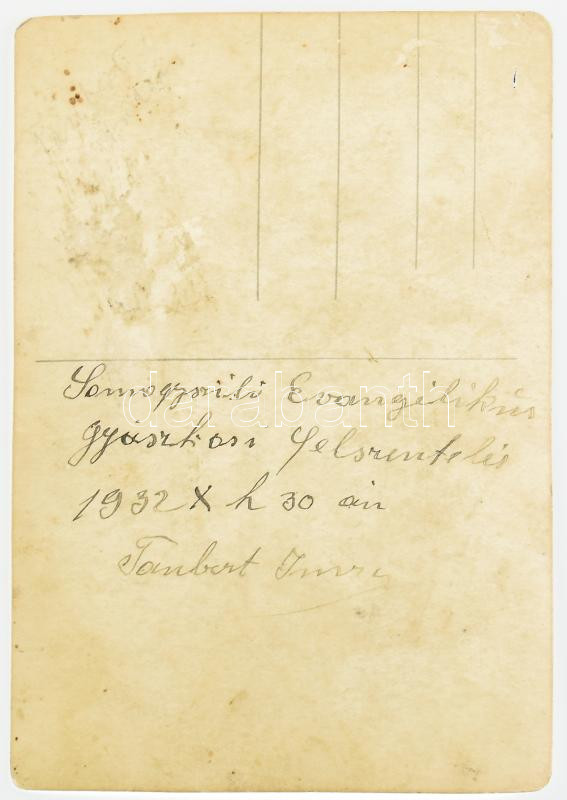 Somogyszili Evangélikus
gyászkosi felszentelés
1932 X h 30 án
Taubert Imre
darabanth